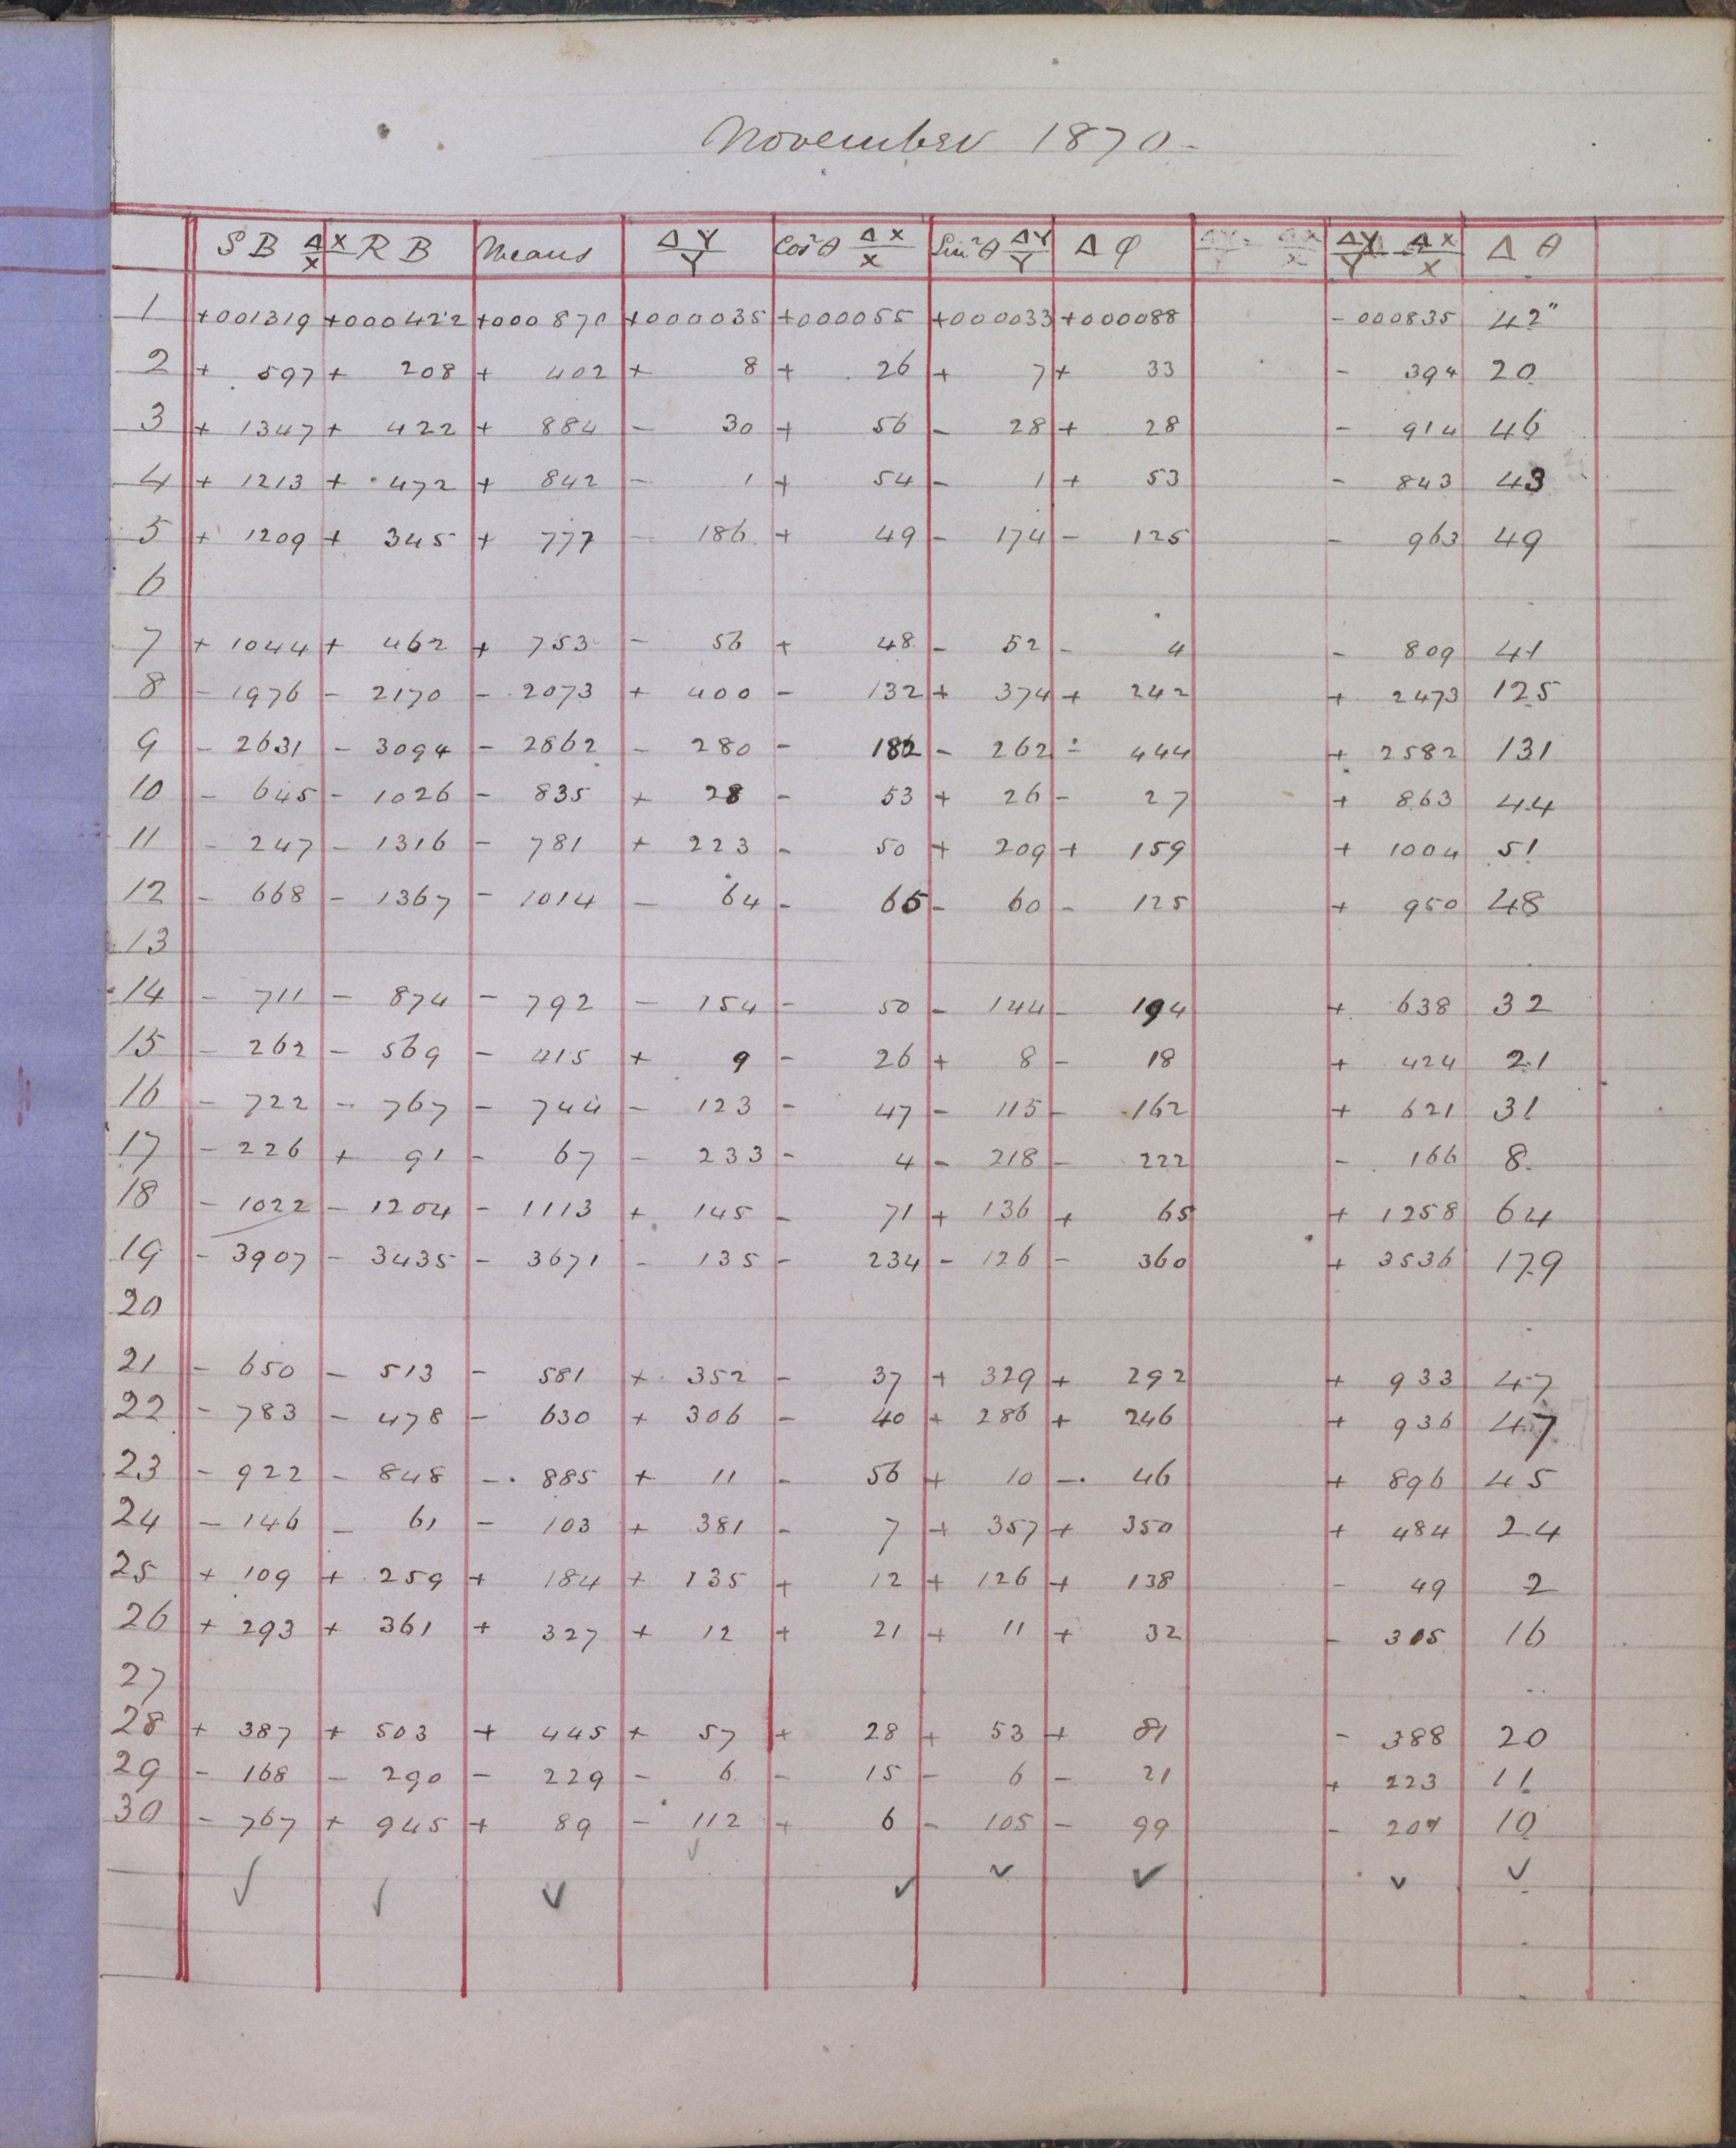 November 1870-
SB ΔX/X RB Means ΔY/Y Cos²θ ΔX/X Sin²θ ΔY/Y Δφ ΔY/Y - ΔX/X Δθ
1 +001319 +000422 +000870 +000035 +000055 +000033 +000088 -000835 42"
2 + 597 + 208 + 402 + 8 + 26 + 7 + 33 - 394 20
3 + 1347 + 422 + 884 - 30 + 56 - 28 + 28 - 914 46
4 + 1213 + 472 + 842 - 1 + 54 - 1 + 53 - 843 43
5 + 1209 + 345 + 777 - 186 + 49 - 174 - 125 - 963 49
6
7 + 1044 + 462 + 753 - 56 + 48 - 52 - 4 - 809 41
8 - 1976 - 2170 - 2073 + 400 - 132 + 374 + 242 + 2473 125
9 - 2631 - 3094 - 2862 - 280 - 182 - 262 - 444 + 2582 131
10 - 645 - 1026 - 835 + 28 - 53 + 26 - 27 + 863 44
11 - 247 - 1316 - 781 + 223 - 50 + 209 + 159 + 1004 51
12 - 668 - 1367 - 1014 - 64 - 65 - 60 - 125 + 950 48
13
14 - 711 - 874 - 792 - 154 - 50 - 144 - 194 + 638 32
15 - 262 - 569 - 415 + 9 - 26 + 8 - 18 + 424 21
16 - 722 - 767 - 744 - 123 - 47 - 115 - 162 + 621 31
17 - 226 + 91 - 67 - 233 - 4 - 218 - 222 - 166 8
18 - 1022 - 1204 - 1113 + 145 - 71 + 136 + 65 + 1258 64
19 - 3907 - 3435 - 3671 - 135 - 234 - 126 - 360 + 3536 179
20
21 - 650 - 513 - 581 + 352 - 37 + 329 + 292 + 933 47
22 - 783 - 478 - 630 + 306 - 40 + 286 + 246 + 936 47
23 - 922 - 848 - 885 + 11 - 56 + 10 - 46 + 896 45
24 - 146 - 61 - 103 + 381 - 7 + 357 + 350 + 484 24
25 + 109 + 259 + 184 + 135 + 12 + 126 + 138 - 49 2
26 + 293 + 361 + 327 + 12 + 21 + 11 + 32 - 315 16
27
28 + 387 + 503 + 445 + 57 + 28 + 53 + 81 - 388 20
29 - 168 - 290 - 229 - 6 - 15 - 6 - 21 + 223 11
30 - 767 + 945 + 89 - 112 + 6 - 105 - 99 - 201 10